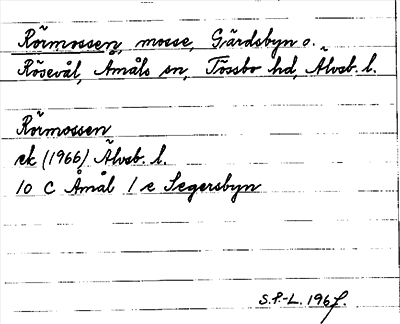 Rörmossen, mosse, Gärdsbyn o.
Rösevål, Åmåls sn, Tössbo hd, Älvsb. l.
Rörmossen
ek (1966) Älvsb. l.
10 C Åmål 1 e Segersbyn
S.P.-L. 1967.